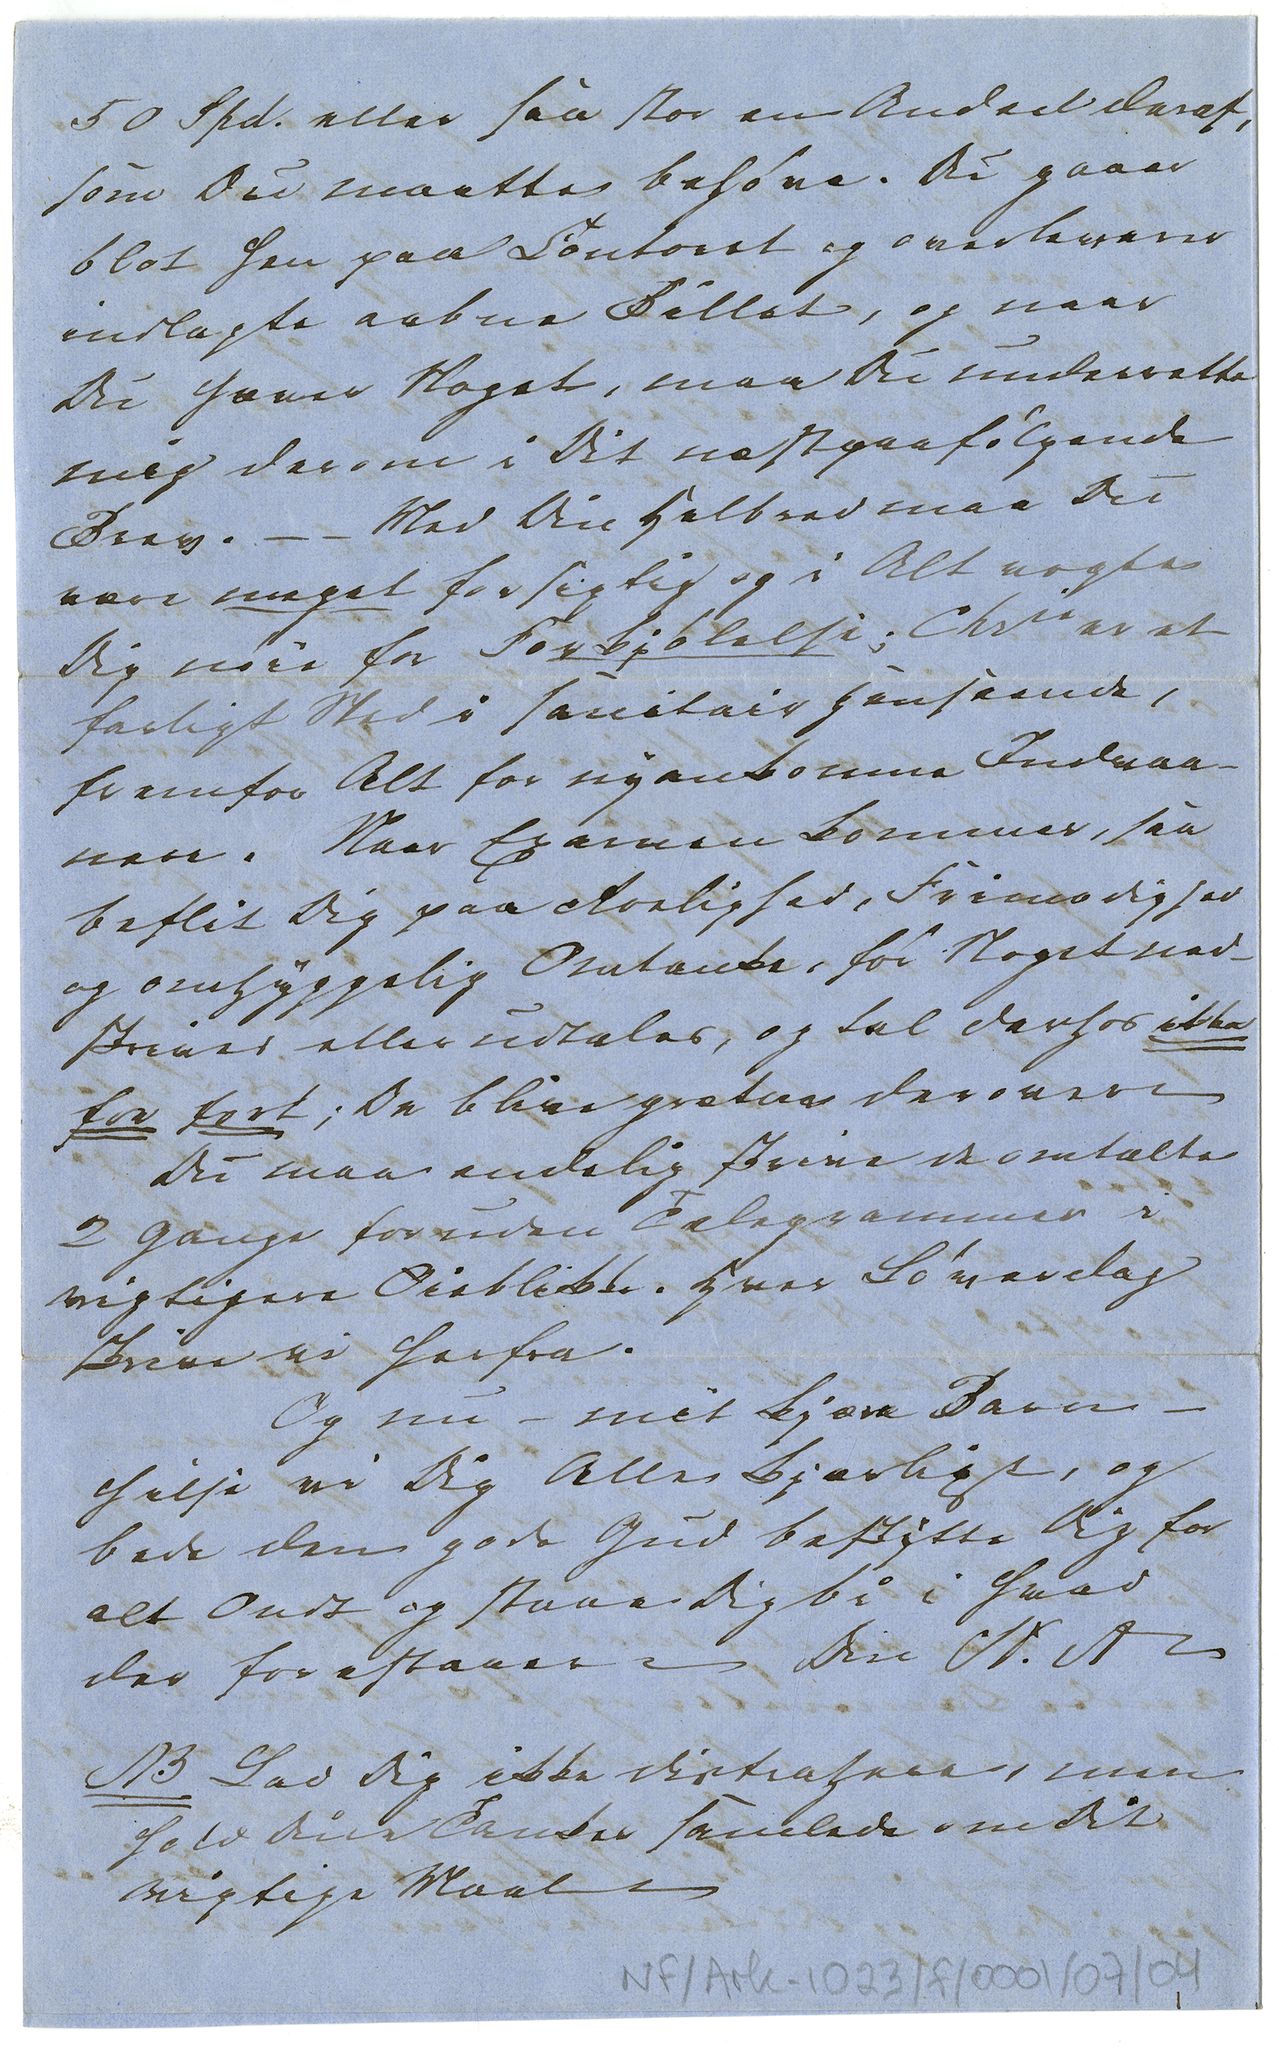 50 Spd. eller saa stor en Andeel deraf,
som Du maatte behøve. Du gaaer
blot hen paa Contoret og overleverer
indlagte aabne Billet, og naar
Du hæver Noget, maa Du underrette
mig derom i Dit næstpaafølgende
Brev. — — Med Din Helbred maa Du
være meget forsigtig og i Alt vogte
Dig nøie for Forkjølelse; Chr.ia er et
farligt Sted i sanitair Henseende,
fremfor Alt for nyankomne Indvaa-
nere. Naar Examen kommer, saa
beflit Dig paa Rolighed, Frimodighed
og omhyggelig Omtanke, før Noget ned-
skrives eller udtales, og tal derhos ikke
for fort; De blive grætne derover
Du maa endelig skrive de omtalte
2 Gange foruden Telegrammer i
vigtigere Øieblikke. Hver Løverdag
skrive vi herfra.
Og nu – mit kjære Barn –
hilse vi Dig Alle kjærligst, og
bede den gode Gud beskytte Dig for
alt Ondt og staae Dig bi i hvad
der forestaaer Din N. A
NB Lad Dig ikke distrahere, men
hold Dine Tanker samlede om Dit
vigtige Maal
NF/Ark-1023/f/0001/07/04